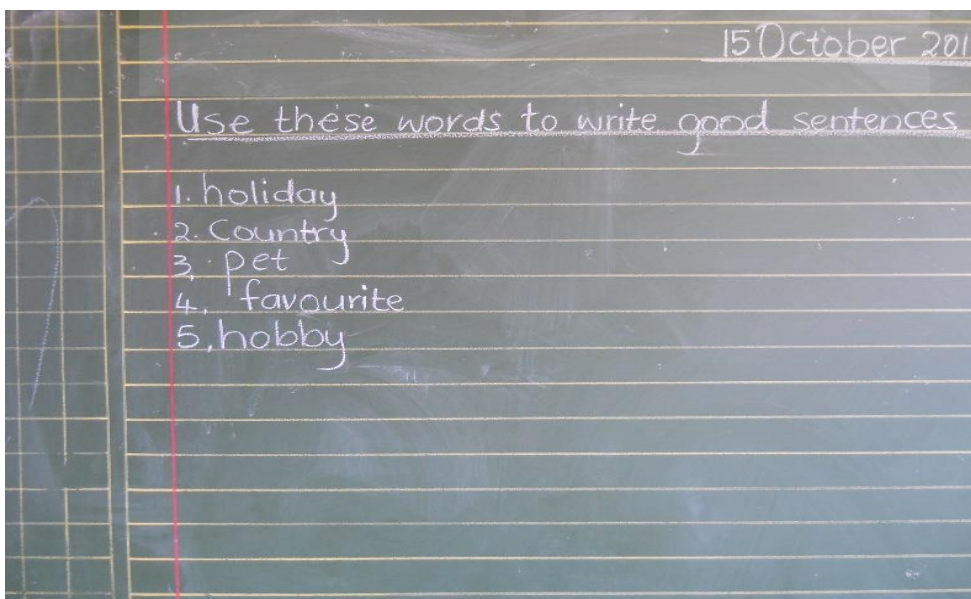 15 October 201
Use these words to write good sentences
1. holiday
2. Country
3. pet
4. favourite
5. hobby